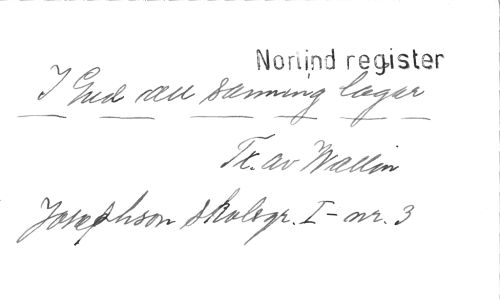 Norlind register
I Gud all sanning lagar
Tx. av Wallin
Josephson skolsgr. I - nr. 3